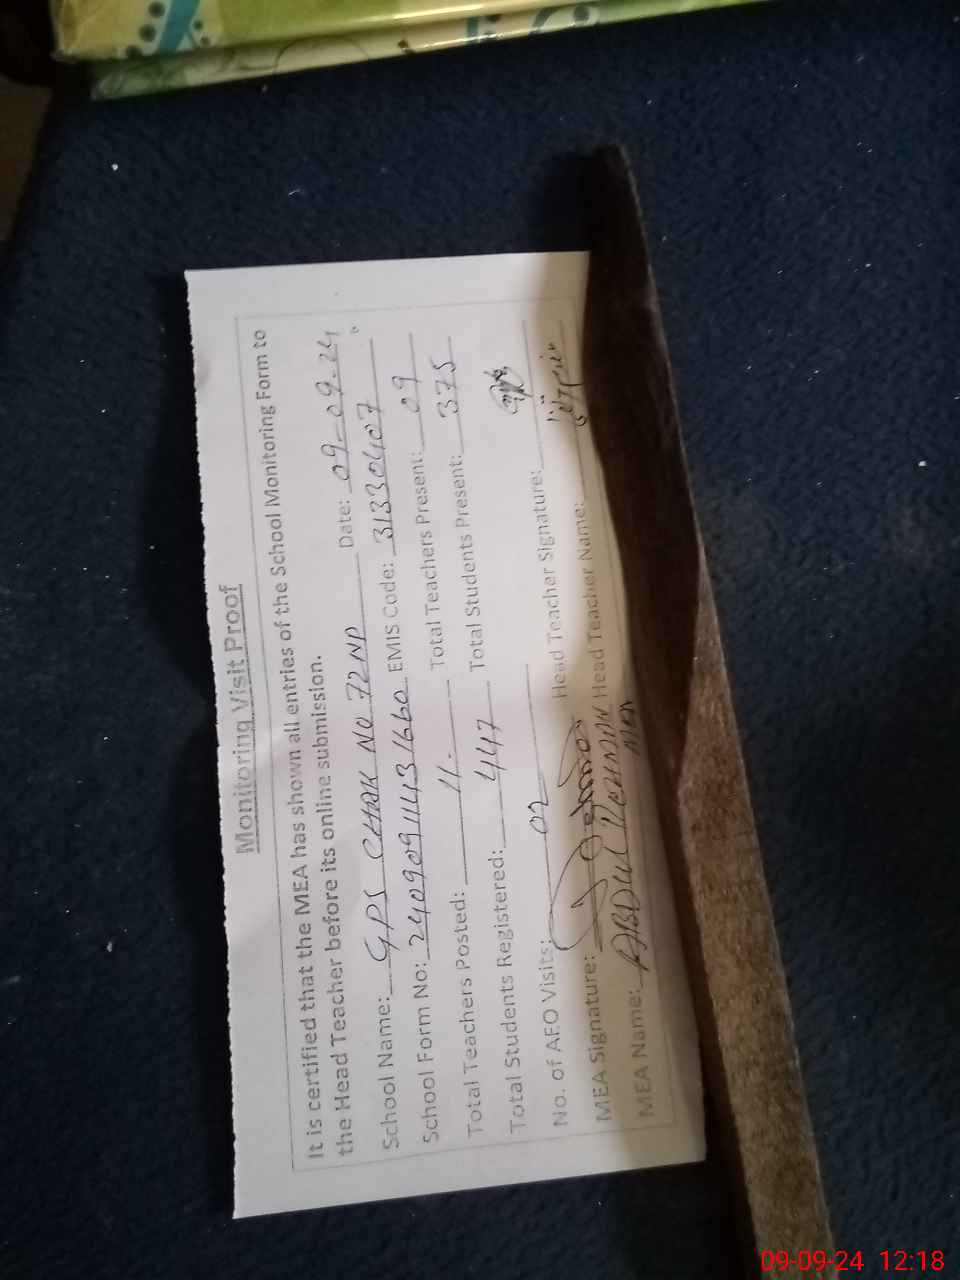 Monitoring Visit Proof
It is certified that the MEA has shown all entries of the School Monitoring Form to
the Head Teacher before its online submission.
School Name: GPS CHAK NO 72 NP Date: 09-09-24
School Form No: 24090911431660 EMIS Code: 31330407
Total Teachers Posted: 11 Total Teachers Present: 09
Total Students Registered: 447 Total Students Present: 375
No. of AEO Visits: 02
MEA Signature: Head Teacher Signature:
MEA Name: ABDUL REHMAN Head Teacher Name:
MEA
09-09-24 12:18